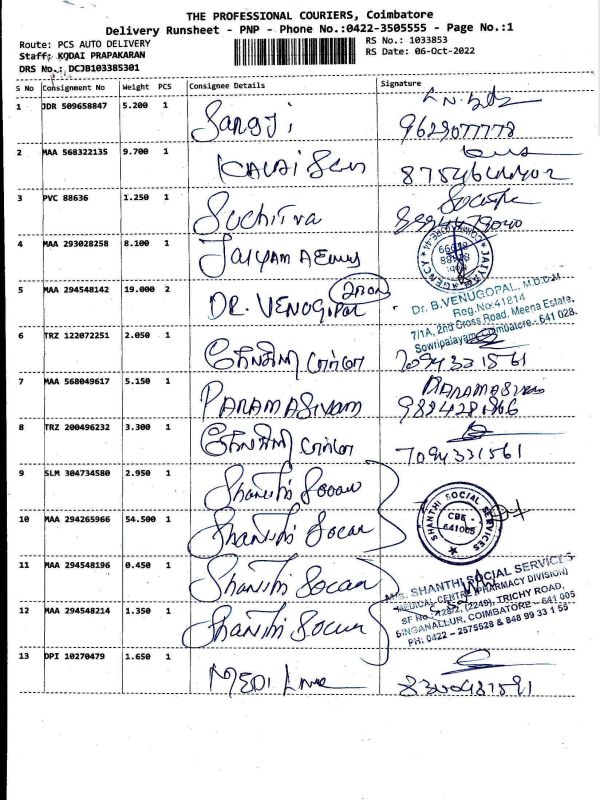 THE PROFESSIONAL COURIERS, Coimbatore
Delivery Runsheet - PNP - Phone No.:0422-3505555 - Page No.:1
Route: PCS AUTO DELIVERY
RS No.: 1033853
Staff: KODAI PRAPAKARAN
RS Date: 06-Oct-2022
DRS No.: DCJB103385301
S No Consignment No Weight PCS Consignee Details Signature
1 JDR 509658847 5.200 1
9629077778
2 MAA 568322135 9.700 1
3 PVC 88636 1.250 1 Suchitra
4 MAA 293028258 8.100 1
5 MAA 294548142 19.000 2 DR. VENUGOPAL 2 Box
Dr. B.VENUGOPAL, M.D.D.M
Reg.No:41814
7/1A, 2nd Cross Road, Meena Estate,
Sowripalayam, Coimbatore - 641 028.
6 TRZ 122072251 2.050 1
7094331561
7 MAA 568049617 5.150 1 PARAMASIVAM PARAMASIVAM
8 TRZ 200496232 3.300 1
7094331561
9 SLM 304734580 2.950 1 Shanthi Social
10 MAA 294265966 54.500 1 Shanthi Social
SHANTHI SOCIAL SERVICES
CBE -
641005
11 MAA 294548196 0.450 1 Shanthi Social
M/S. SHANTHI SOCIAL SERVICES
MEDICAL CENTRE (PHARMACY DIVISION)
12 MAA 294548214 1.350 1 Shanthi Social
TRICHY ROAD,
SINGANALLUR, COIMBATORE - 641 005
PH: 0422 - 2575528 & 848 99 33 1 55
13 DPI 10270479 1.650 1 MEDI Line